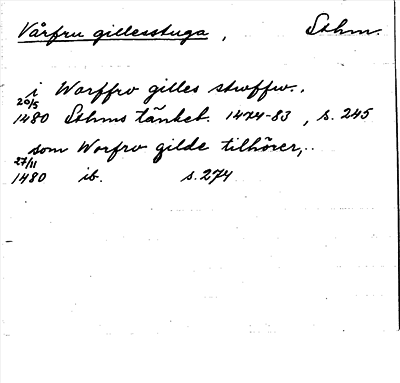 Vårfru gillesstuga, Sthm.
i Worffrw gilles stwffw..
20/5
1480 Sthms tänkeb. 1474-83, s. 245
som Worfrw gilde tilhörer,..
27/11
1480 ib. s. 274